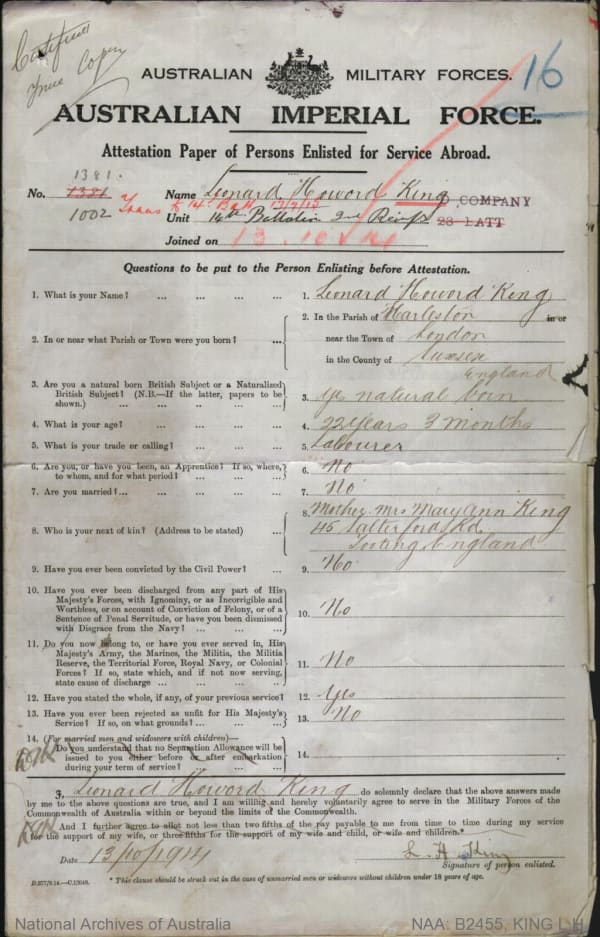 Certified
True Copy
16
AUSTRALIAN MILITARY FORCES.
AUSTRALIAN IMPERIAL FORCE.
Attestation Paper of Persons Enlisted for Service Abroad.
1381.
No. 1381 Name Leonard Howord King D COMPANY
1002 Trans to 14 Batt 17/7/15 Unit 14th Battalion 2nd Reinfs 28 LATT
Joined on 13.10.14
Questions to be put to the Person Enlisting before Attestation.
1. What is your Name? ... ... ... ... 1. Leonard Howord King
2. In or near what Parish or Town were you born? ... 2. In the Parish of Harleston in or
near the Town of London
in the County of Sussex
England
3. Are you a natural born British Subject or a Naturalized
British Subject? (N.B.—If the latter, papers to be
shown.) ... ... ... ... ... 3. Yes natural born
4. What is your age? ... ... ... ... 4. 22 years 3 months
5. What is your trade or calling? ... ... ... 5. Labourer
6. Are you, or have you been, an Apprentice? If so, where,
to whom, and for what period? ... ... ... 6. No
7. Are you married?... ... ... ... ... 7. No
8. Who is your next of kin? (Address to be stated) ... 8. Mother Mrs Mary Ann King
45 Salterford Rd
Tooting England
9. Have you ever been convicted by the Civil Power? ... 9. No
10. Have you ever been discharged from any part of His
Majesty's Forces, with Ignominy, or as Incorrigible and
Worthless, or on account of Conviction of Felony, or of a
Sentence of Penal Servitude, or have you been dismissed
with Disgrace from the Navy? ... ... ... 10. No
11. Do you now belong to, or have you ever served in, His
Majesty's Army, the Marines, the Militia, the Militia
Reserve, the Territorial Force, Royal Navy, or Colonial
Forces? If so, state which, and if not now serving,
state cause of discharge ... ... ... ... 11. No
12. Have you stated the whole, if any, of your previous service? 12. Yes
13. Have you ever been rejected as unfit for His Majesty's
Service? If so, on what grounds? ... ... ... 13. No
14. (For married men and widowers with children)—
Do you understand that no Separation Allowance will be
issued to you either before or after embarkation
during your term of service? ... ... ... 14.
I, Leonard Howord King do solemnly declare that the above answers made
by me to the above questions are true, and I am willing and hereby voluntarily agree to serve in the Military Forces of the
Commonwealth of Australia within or beyond the limits of the Commonwealth.
And I further agree to allot not less than two fifths of the pay payable to me from time to time during my service
for the support of my wife, or three fifths for the support of my wife and child, or wife and children.*
Date 13/10/1914 L. H. King
Signature of person enlisted.
* This clause should be struck out in the case of unmarried men or widowers without children under 18 years of age.
National Archives of Australia NAA: B2455, KING L H